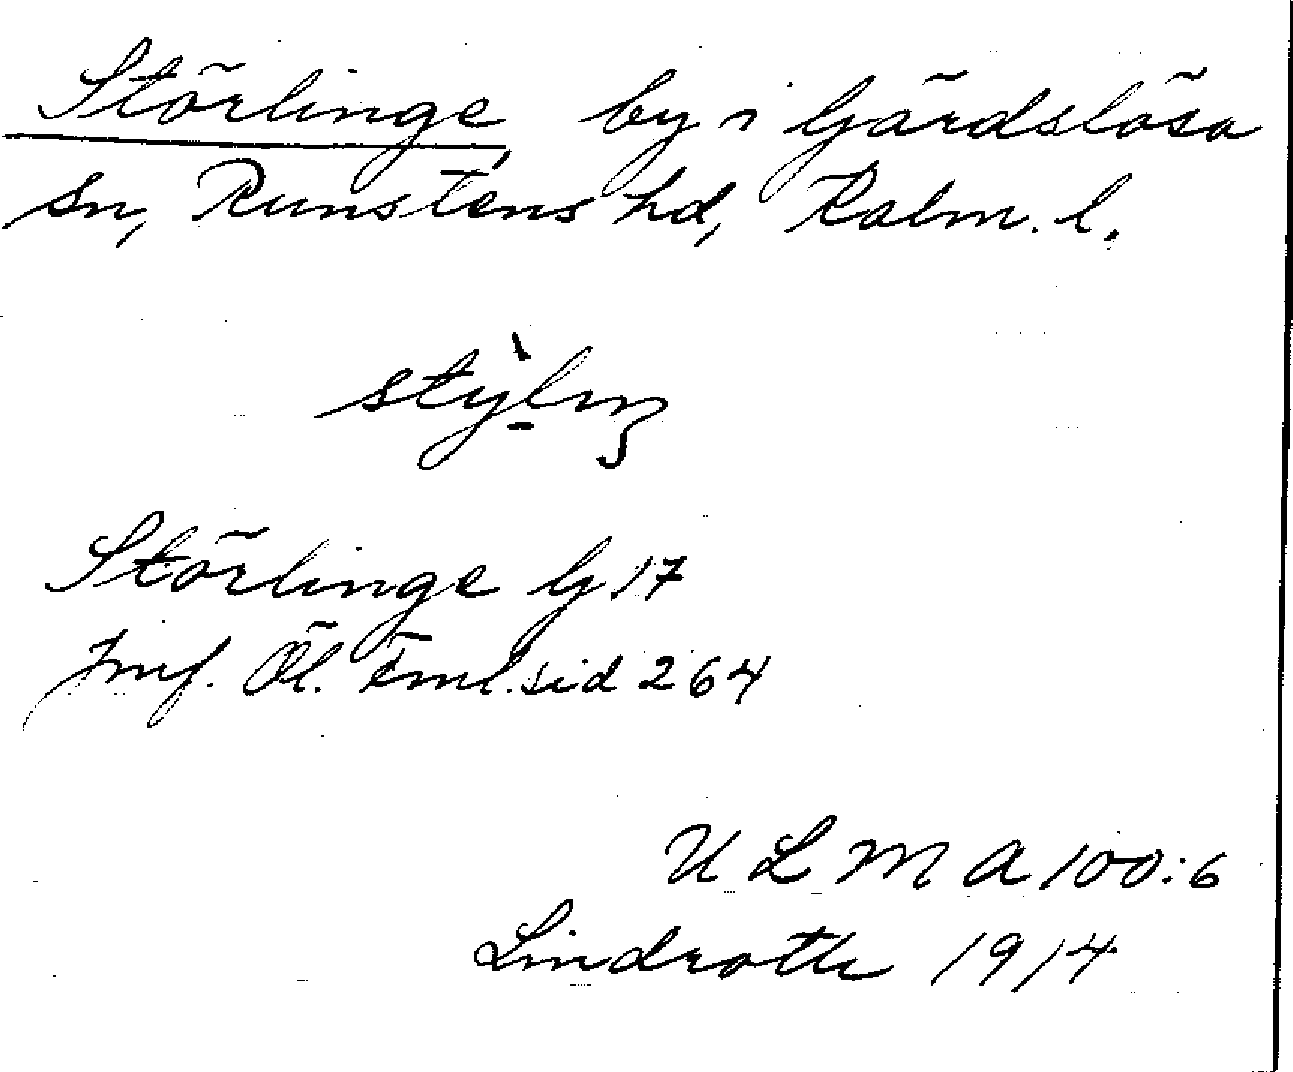 Störlinge by i Gärdslösa
sn, Runstens hd, Kalm. l.
Störlinge G 17
Jmf. Öl. Fml. sid 264
ULMA 100:6
Lindroth 1914